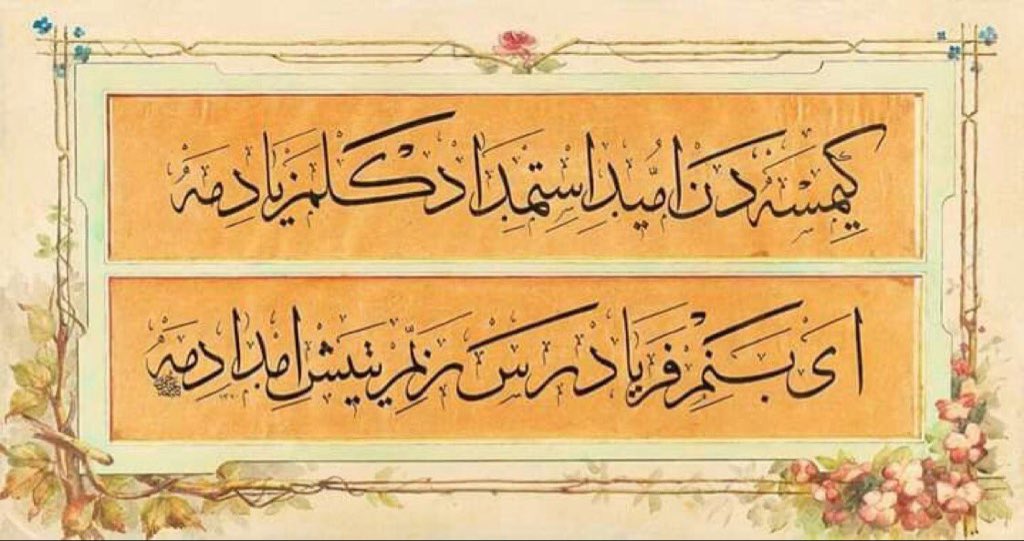 كیمسه‌دن امّید استمداد كلمز یادمه
ای بنم فریاد رسرزیم یتیش امدادمه